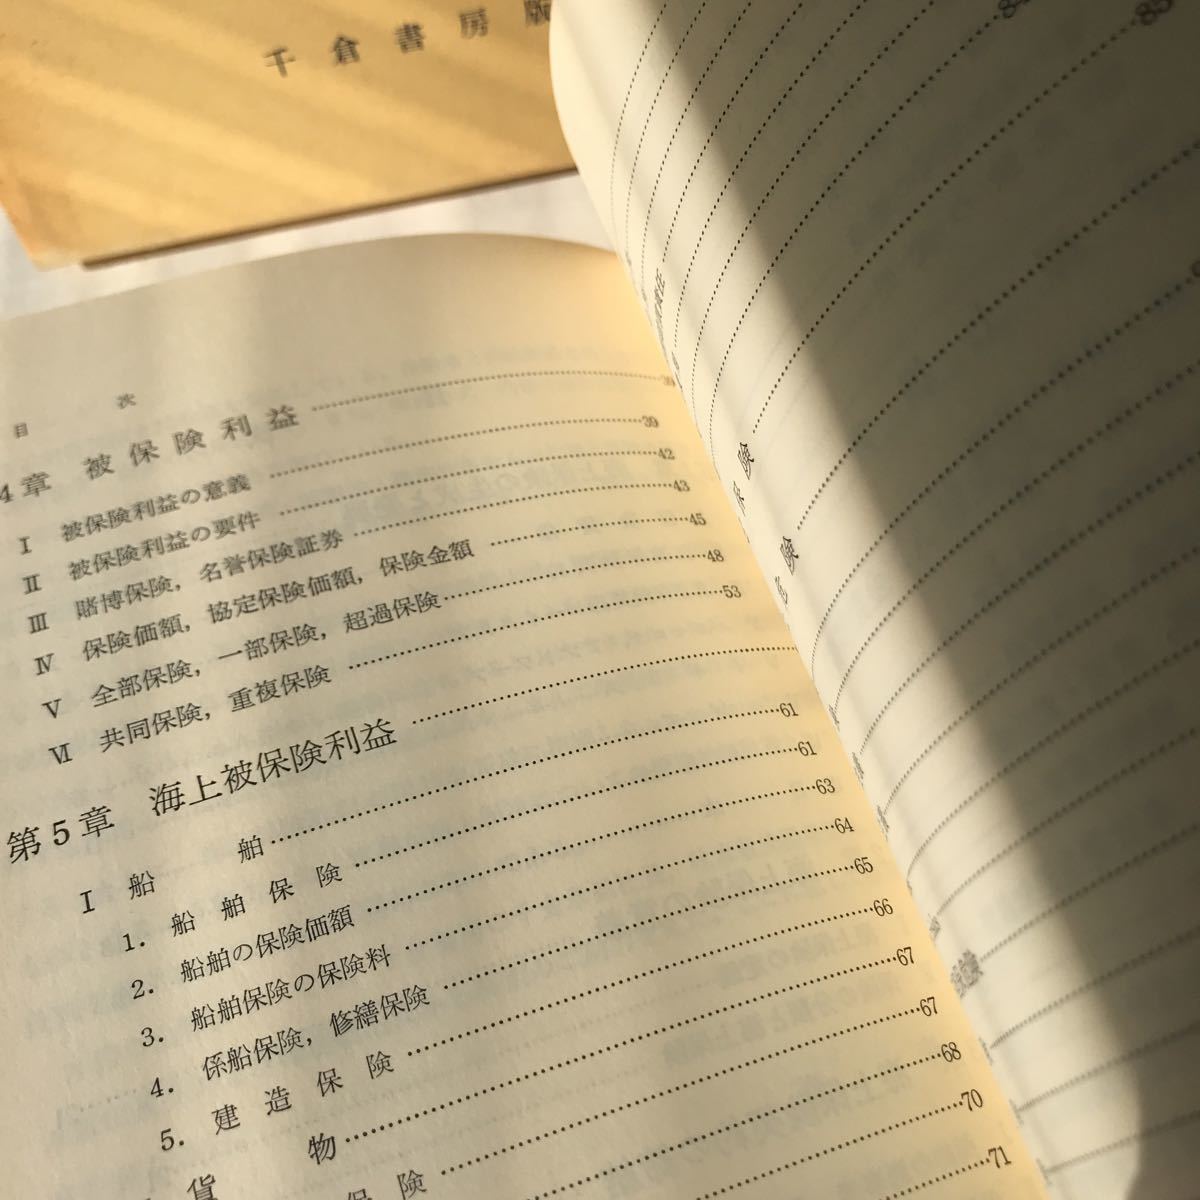 千倉書房版
目次
4章 被保険利益 39
Ⅰ 被保険利益の意義 39
Ⅱ 被保険利益の要件 42
Ⅲ 賭博保険,名誉保険証券 43
Ⅳ 保険価額,協定保険価額,保険金額 45
Ⅴ 全部保険,一部保険,超過保険 48
Ⅵ 共同保険,重複保険 53
第5章 海上被保険利益
Ⅰ 船舶 61
1. 船舶保険 61
2. 船舶の保険価額 63
3. 船舶保険の保険料 64
4. 係船保険,修繕保険 65
5. 建造保険 66
貨物 67
保険 67
68
70
71
85
険
険